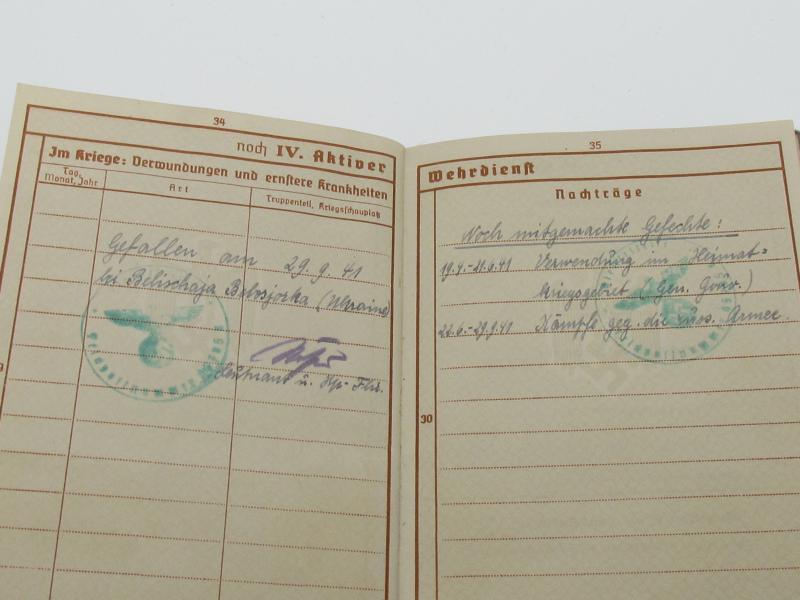 34
noch IV. Aktiver
Im Kriege: Verwundungen und ernstere Krankheiten
Tag, Monat, Jahr
Art
Truppenteil, Kriegsschauplatz
Gefallen am 29.9.41
bei Belischaja Belosjorka (Ukraine)
Leutnant u. Kp.-Fhr.
35
Wehrdienst
Nachträge
Noch mitgemachte Gefechte:
19.4.-21.6.41 Verwendung im Heimat-
kriegsgebiet (Gen. Gouv.)
22.6.-29.9.41 Kämpfe geg. die russ. Armee.
30